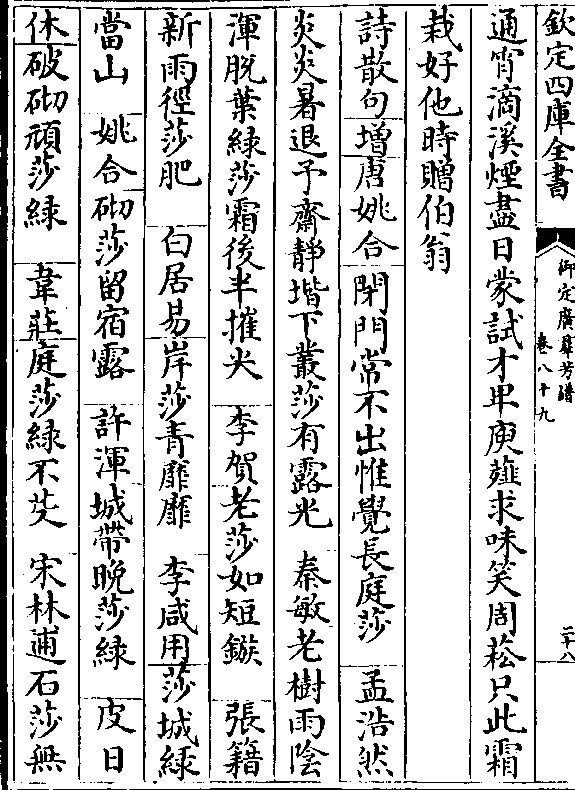 欽定四庫全書
御定廣羣芳譜
卷八十九
二十八
通宵滴溪煙盡日蒙試才毕庾薤求味笑周菘只此霜
栽好他時贈伯翁
詩散句增唐姚合閉門常不出惟覺長庭莎 孟浩然
炎炎暑退予齋靜堦下叢莎有露光 秦敏老樹雨陰
渾脱葉緑莎霜後半摧尖 李賀老莎如短鏃 張籍
新雨徑莎肥 白居易岸莎青靡靡 李咸用莎城緑
當山 姚合砌莎留宿露 許渾城帶晩莎緑 皮日
休破砌頑莎緑 韋莊庭莎緑不芟 宋林逋石莎無